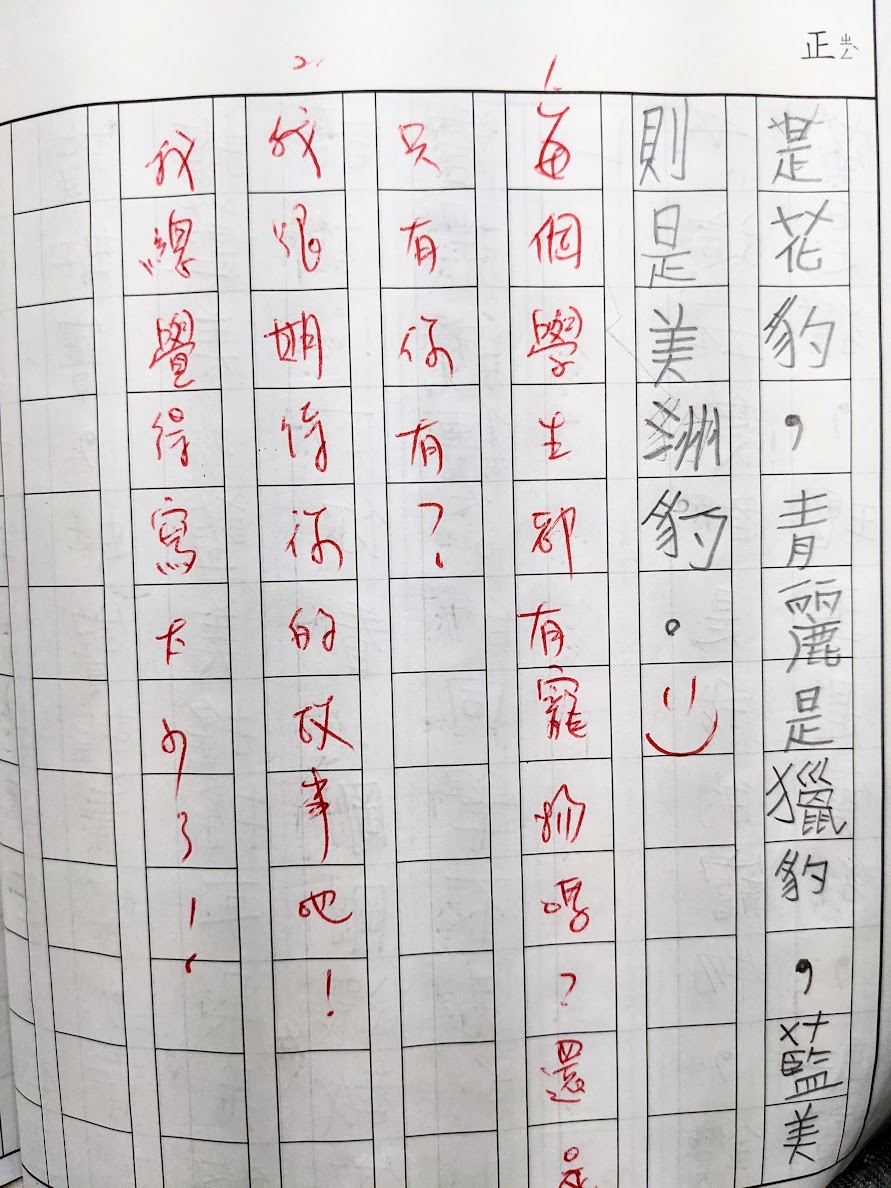 正
是花豹，青麗是獵豹，藍美
則是美洲豹。
1.每個學生都有寵物嗎？還是
只有你有？
2.我很期待你的故事吔！
我總覺得寫太少了！